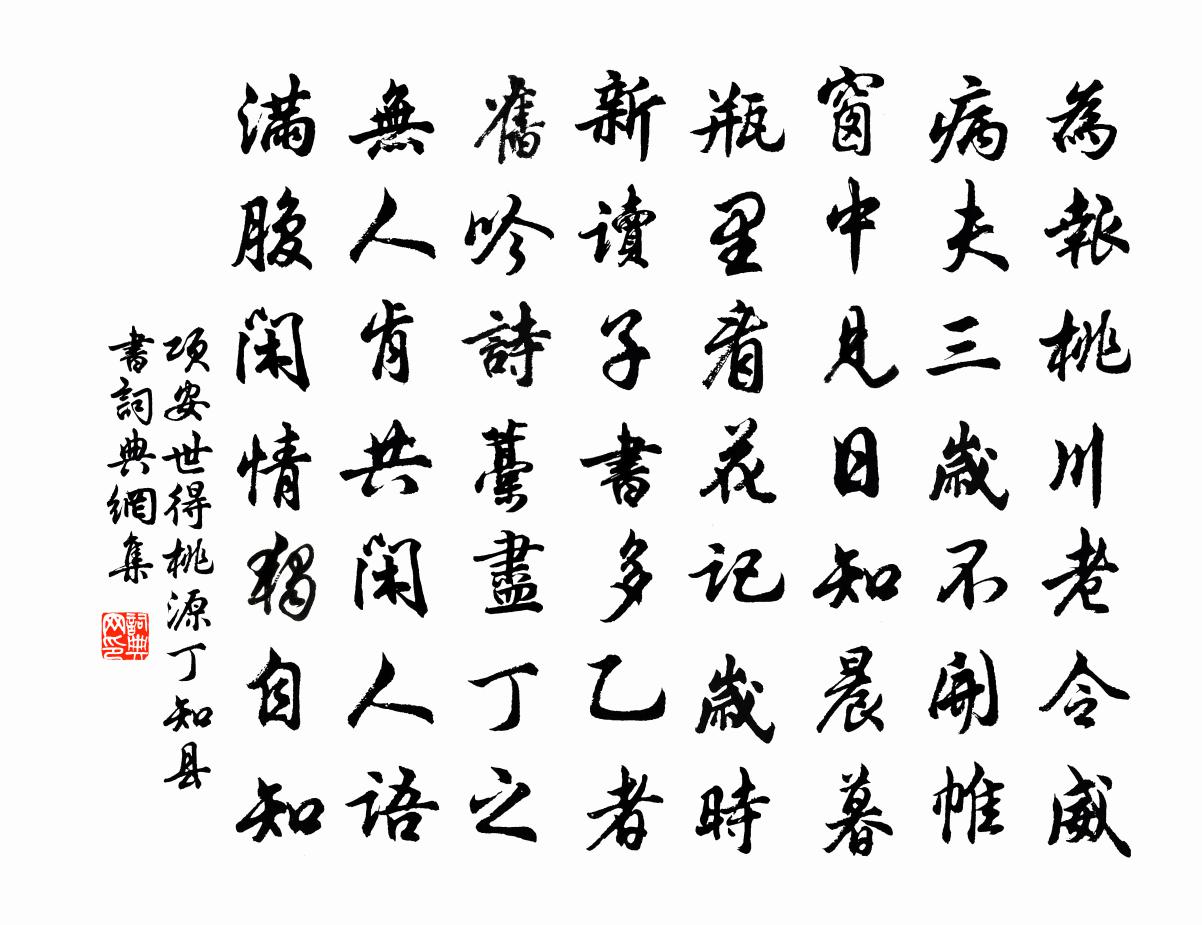 為報桃川老令威
病夫三歲不開帷
窗中見日知晨暮
瓶里看花記歲時
新讀子書多乙者
舊吟詩藁盡丁之
無人肯共閑人語
滿腹閑情獨自知
项安世得桃源丁知县
書詞典網集
詞典网印